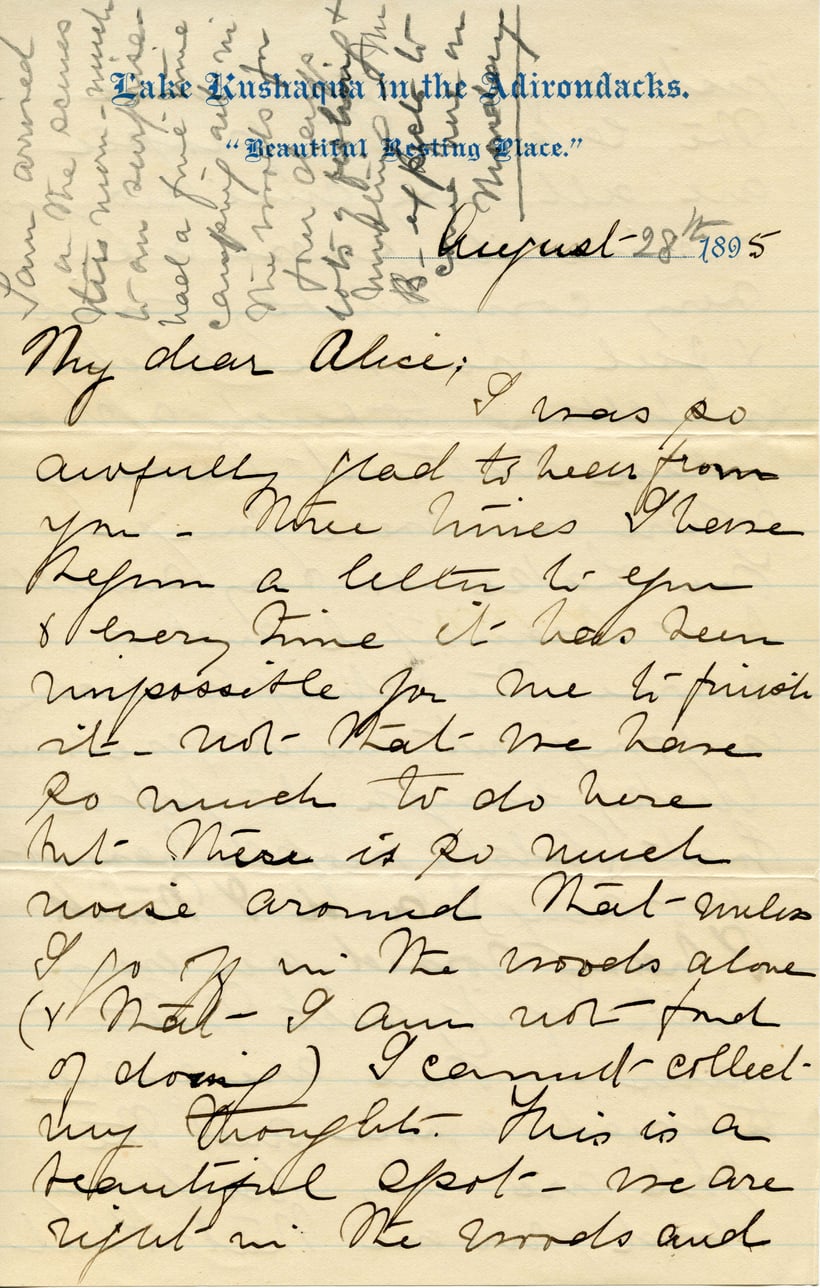 Lake Kushaqua in the Adirondacks.
"Beautiful Resting Place."
August 28th 1895
My dear Alice;
I was so
awfully glad to hear from
you - Three times I have
begun a letter to you
& every time it has been
impossible for me to finish
it - not that we have
so much to do here
but there is so much
noise around that unless
I go off in the woods alone
(& that I am not fond
of doing) I cannot collect
my thoughts. This is a
beautiful spot - we are
right in the woods and
I am
on the
this morn - much
to
had a fine time
camping out in
the woods for
four days
lots of fishing &
hunting
B - expects to
come on
Monday